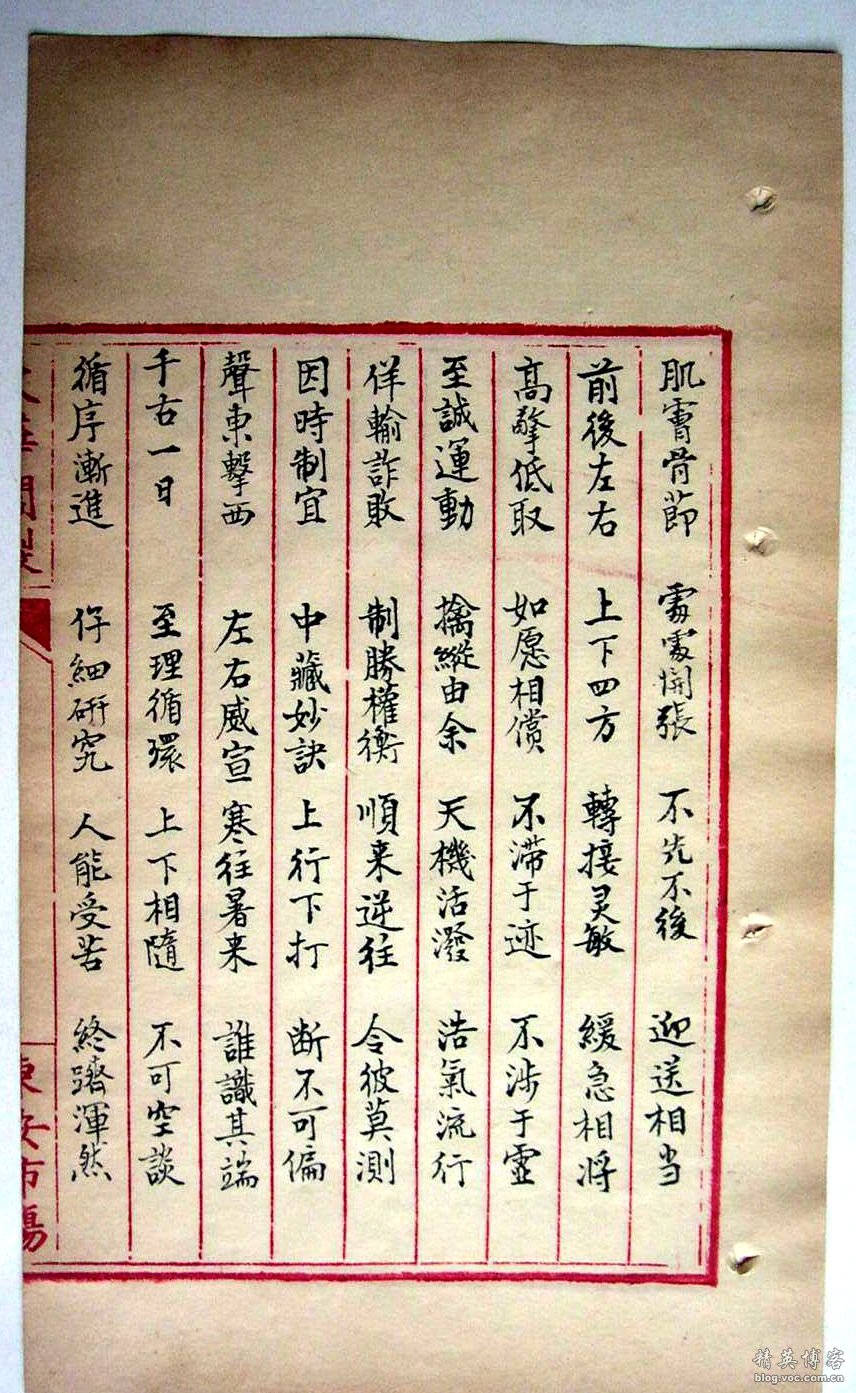 肌膚骨節 處處開張 不先不後 迎送相当
前後左右 上下四方 轉接灵敏 緩急相将
高擎低取 如愿相償 不滞于迹 不涉于虚
至誠運動 擒縱由余 天機活潑 浩氣流行
佯輸詐敗 制勝權衡 順来逆往 令彼莫測
因時制宜 中藏妙訣 上行下打 断不可偏
聲東擊西 左右威宣 寒往暑来 誰識其端
千古一日 至理循環 上下相隨 不可空談
循序漸進 仔細研究 人能受苦 終躋渾然
東安市場
精英博客
blog.voc.com.cn